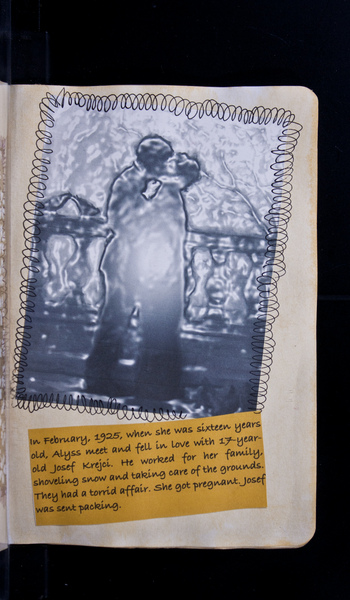 In February, 1925, when she was sixteen years
old, Alyss meet and fell in love with 17-year-
old Josef Krejci. He worked for her family,
shoveling snow and taking care of the grounds.
They had a torrid affair. She got pregnant. Josef
was sent packing.